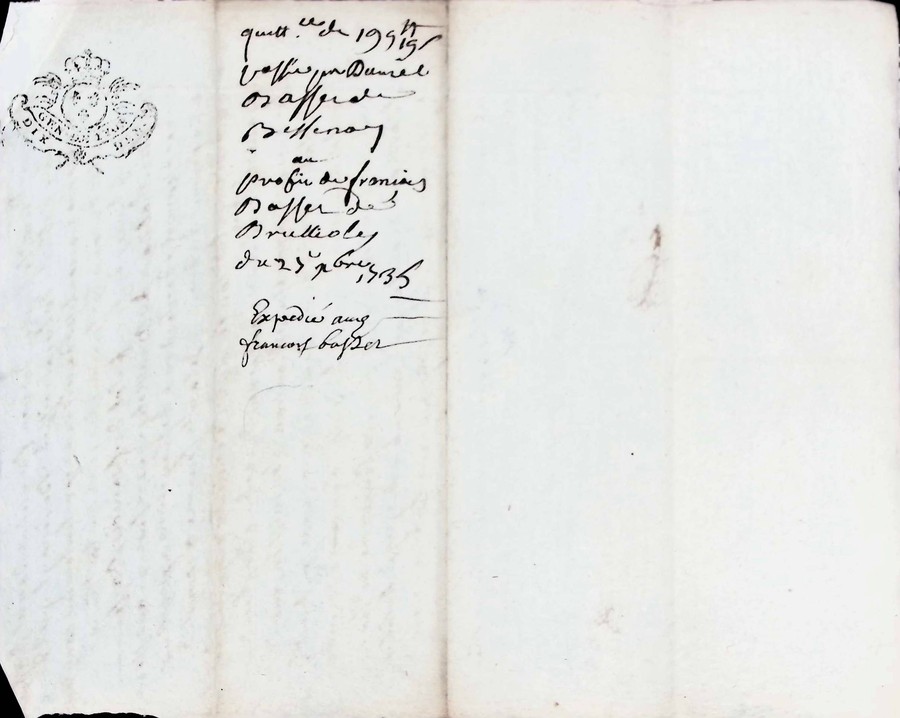 GEN. DE LYON
DIX DEN.
quitt.ce de 195tt
19s
passée par Daniel
Basset de
Bessenay
au
profit de francois
Basset de
Brullioles
du 25e 9bre 1735
Expedié aud
francois basset